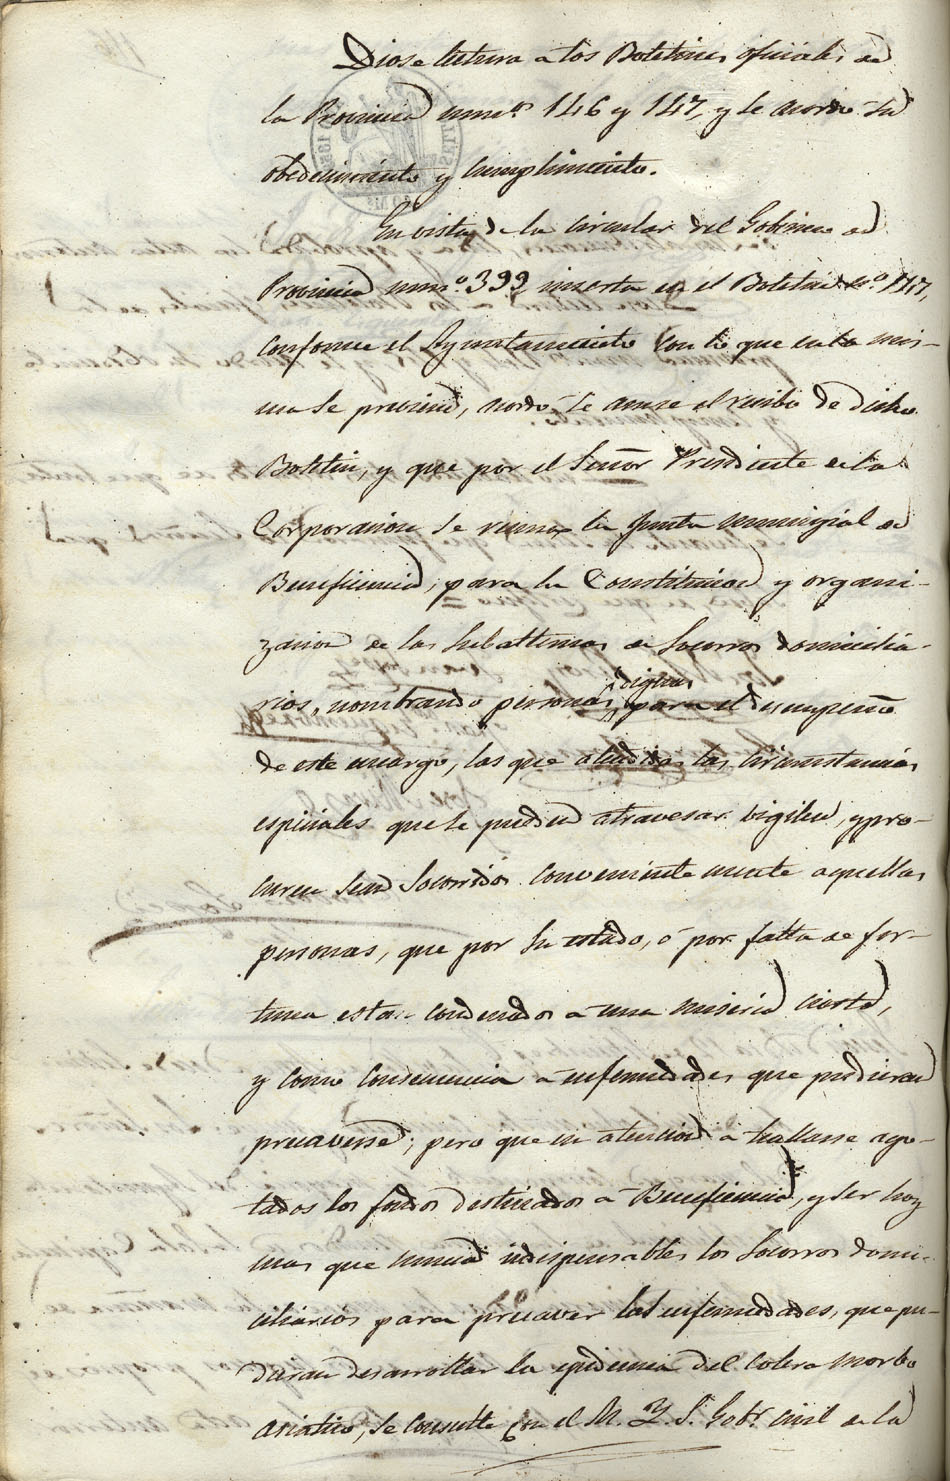 Diose lectura a los Boletines oficiales de
la Provincia num.s 146 y 147, y se acordo su
obedecimiento y cumplimiento.
En vista de la circular del Gobierno de
Provincia num.o 399 inserta en el Boletin n.o 147,
conforme el Ayuntamiento con lo que en la mis-
ma se previene, acordó se acuse el recibo de dicho
Boletin, y que por el Señor Presidente de la
Corporacion se reuna la Junta municipal de
Beneficencia, para la Constitucion y organi-
zacion de las subalternas de Socorros domicilia-
rios, nombrando personas dignas para el desempeño
de este encargo, las que atendidas las circunstancias
especiales que se puedan atravesar vigilen, y pro-
curen sean Socorridos convenientemente aquellas
personas, que por su estado, ó por falta de for-
tuna estan condenados a una miseria cierta,
y como consecuencia a enfermedades que pudieran
precaverse; pero que en atencion a hallarse ago-
tados los fondos destinados a Beneficencia, y ser hoy
mas que nunca indispensables los Socorros domi-
ciliarios para precaver las enfermedades, que pu-
dieran desarrollar la epidemia del colera morbo
asiatico, se consulte con el M. Y. S. Gob.r Civil de la